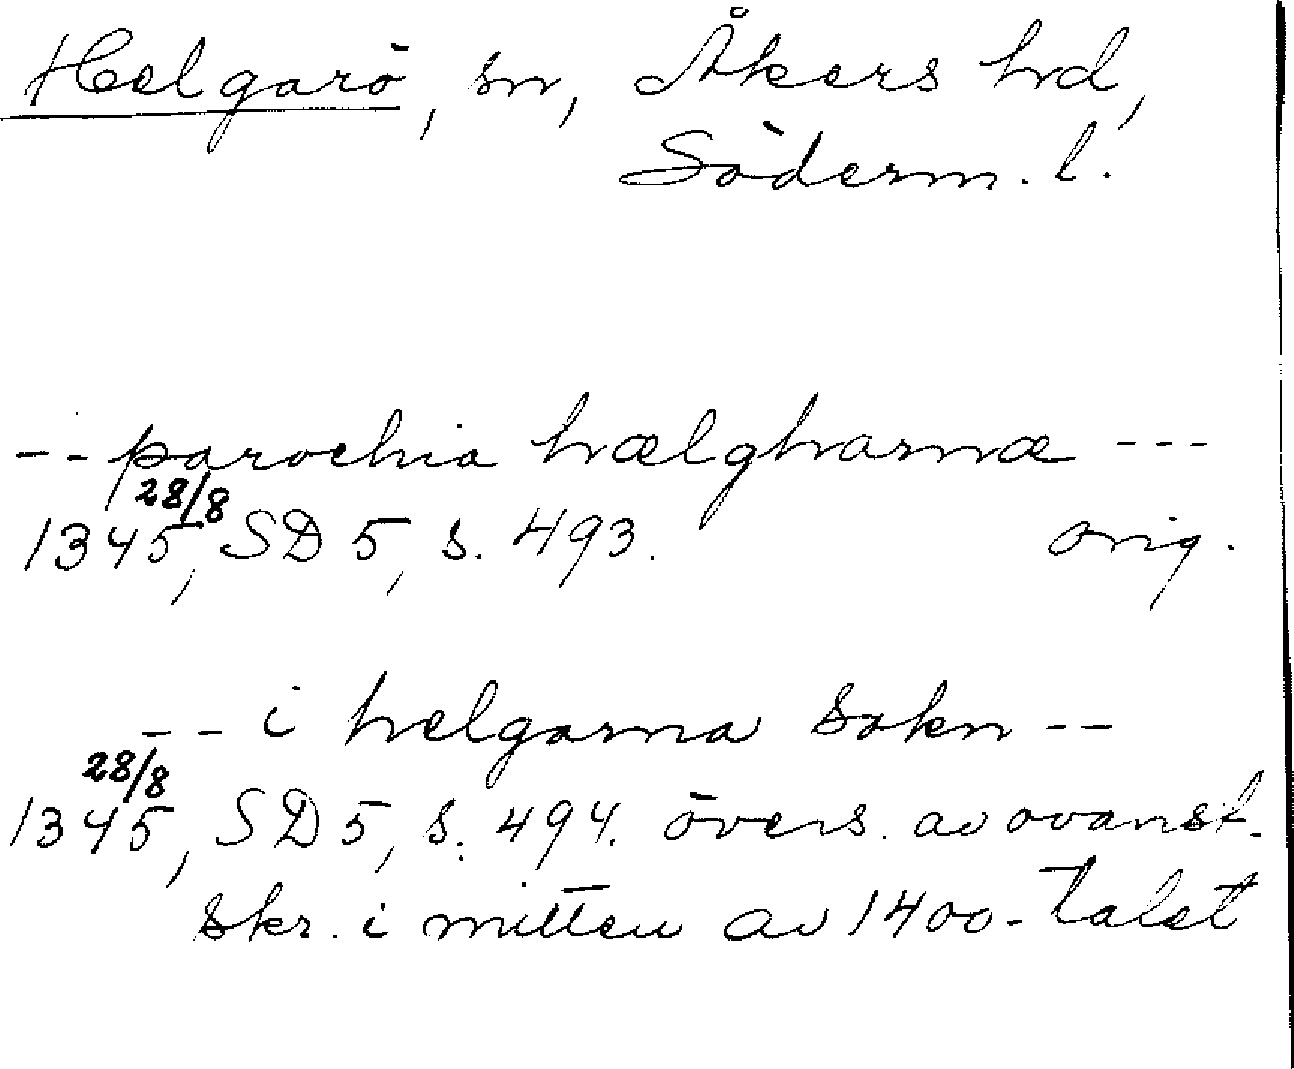 Helgarö, sn, Åkers hd,
Söderm. l.
-- parochia hælgharnæ ---
28/8
1345, SD 5, s. 493. orig.
-- i helgarna sokn --
28/8
1345, SD 5, s. 494. övers. av ovanst.
skr. i mitten av 1400-talet